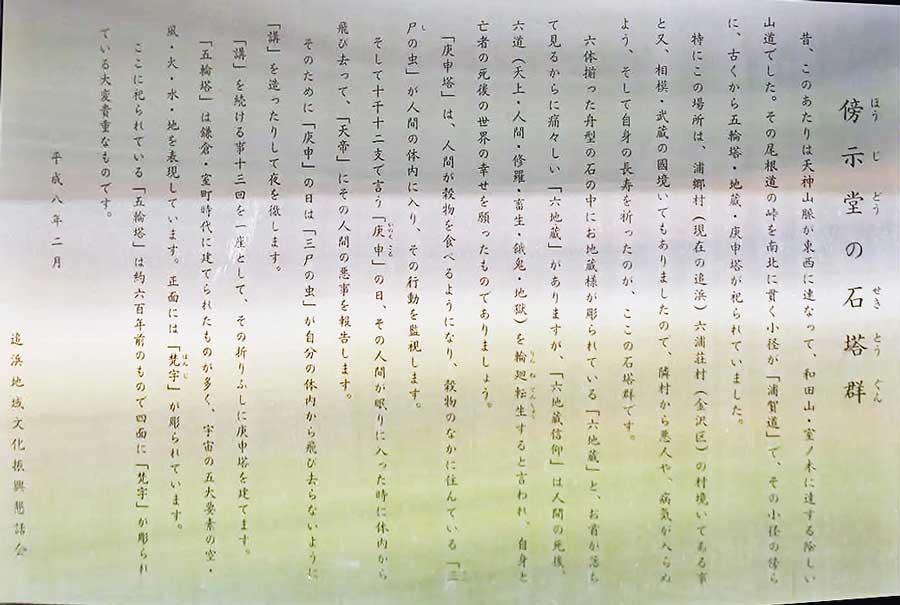 傍示堂の石塔群
ほうじどう せきとうぐん
昔、このあたりは天神山脈が東西に連なって、和田山・室ノ木に達する険しい
山道でした。その尾根道の峠を南北に貫く小径が「浦賀道」で、その小径の傍ら
に、古くから五輪塔・地蔵・庚申塔が祀られていました。
特にこの場所は、浦郷村（現在の追浜）六浦荘村（金沢区）の村境いである事
と又、相模・武蔵の國境いでもありましたので、隣村から悪人や、病気が入らぬ
よう、そして自身の長寿を祈ったのが、ここの石塔群です。
六体揃った舟型の石の中にお地蔵様が彫られている「六地蔵」と、お首が落ち
て見るからに痛々しい「六地蔵」がありますが、「六地蔵信仰」は人間の死後、
六道（天上・人間・修羅・畜生・餓鬼・地獄）を輪廻転生すると言われ、自身と
りんねてんしょう
亡者の死後の世界の幸せを願ったものでありましょう。
「庚申塔」は、人間が穀物を食べるようになり、穀物のなかに住んでいる「三
尸の虫」が人間の体内に入り、その行動を監視します。
し
そして十干十二支で言う「庚申」の日、その人間が眠りに入った時に体内から
飛び去って、「天帝」にその人間の悪事を報告します。
そのために「庚申」の日は「三尸の虫」が自分の体内から飛び去らないように
「講」を造ったりして夜を徹します。
「講」を続ける事十三回を一座として、その折りふしに庚申塔を建てます。
「五輪塔」は鎌倉・室町時代に建てられたものが多く、宇宙の五大要素の空・
風・火・水・地を表現しています。正面には「梵字」が彫られています。
ぼんじ
ここに祀られている「五輪塔」は約六百年前のもので四面に「梵字」が彫られ
ている大変貴重なものです。
平成八年二月
追浜地域文化振興懇話会